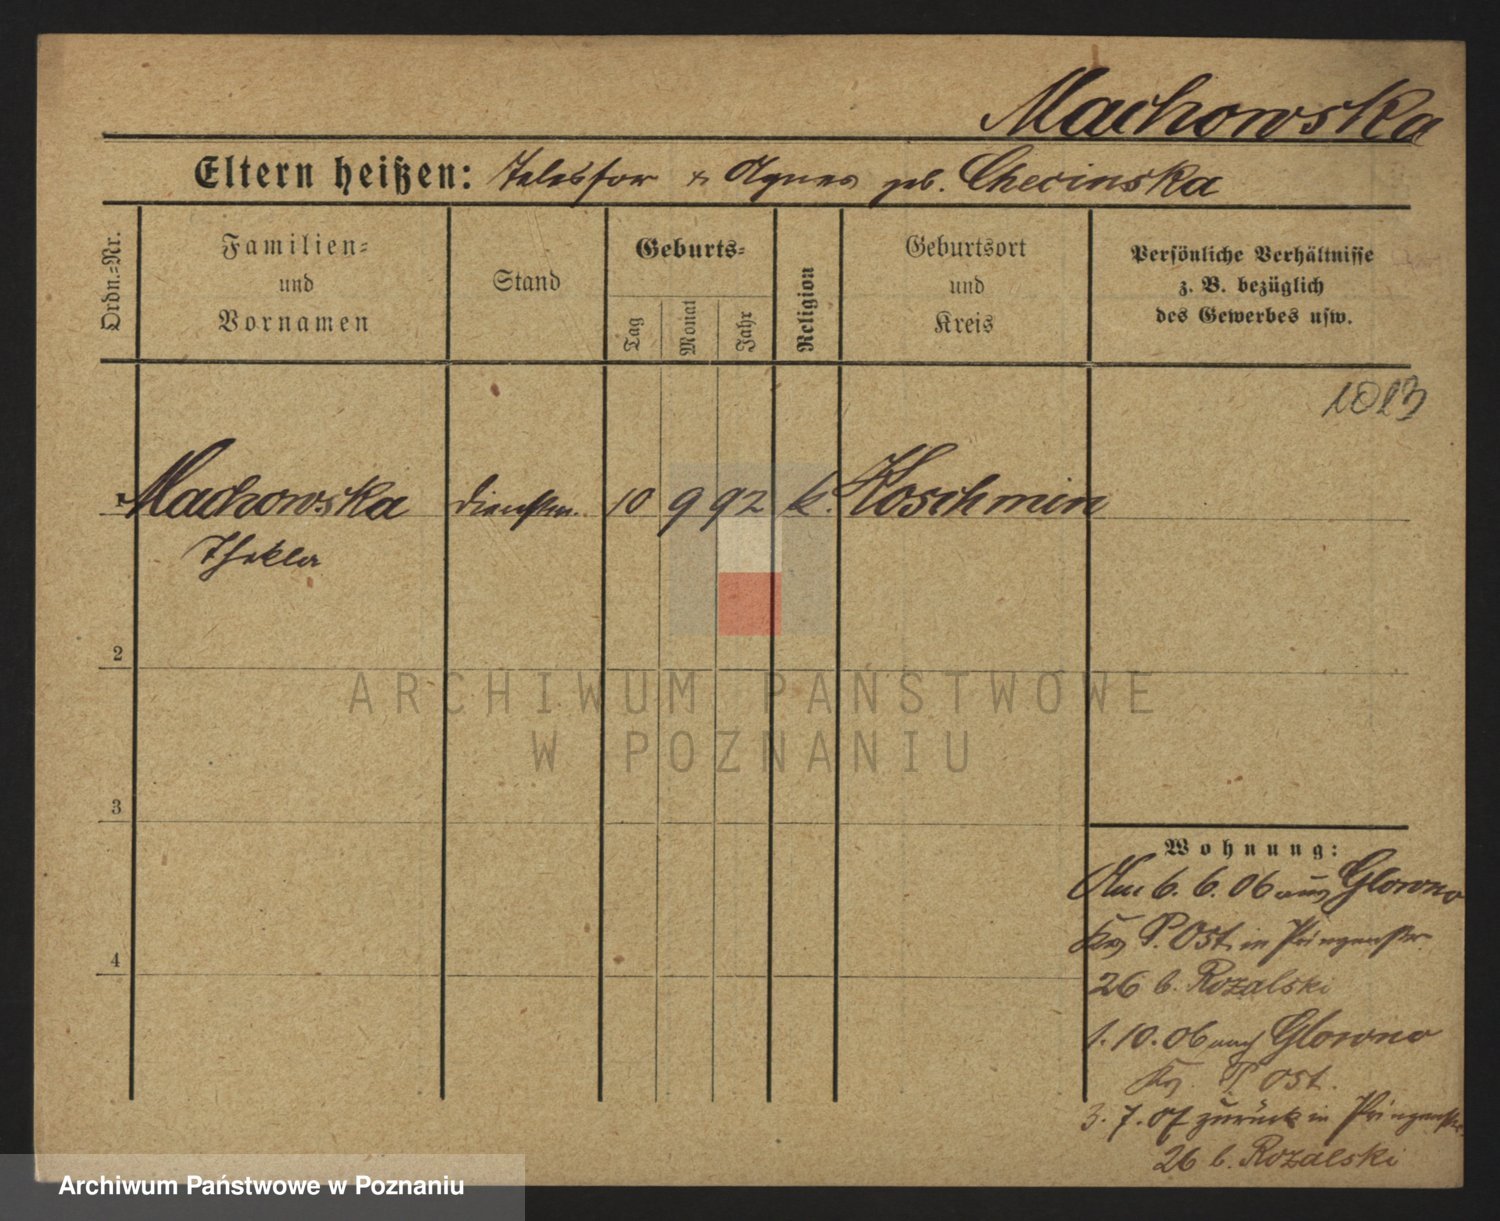 Machowska
Eltern heißen: Telesfor & Agnes geb. Checinska
Ordn.=Nr.
Familien=
und
Vornamen
Stand
Geburts=
Tag
Monat
Jahr
Religion
Geburtsort
und
Kreis
Persönliche Verhältnisse
z. B. bezüglich
des Gewerbes usw.
1013
Machowska Dienstm. 10 9 92 k. Koschmin
Thekla
2
3
4
Wohnung:
Am 6. 6. 06 aus Glowno
Krs P. Ost in Prinzenstr.
26 b. Rozalski
1. 10. 06 nach Glowno
Krs. P Ost.
3. 7. 07 zurück in Prinzenstr.
26 b. Rozalski
ARCHIWUM PAŃSTWOWE
W POZNANIU
Archiwum Państwowe w Poznaniu